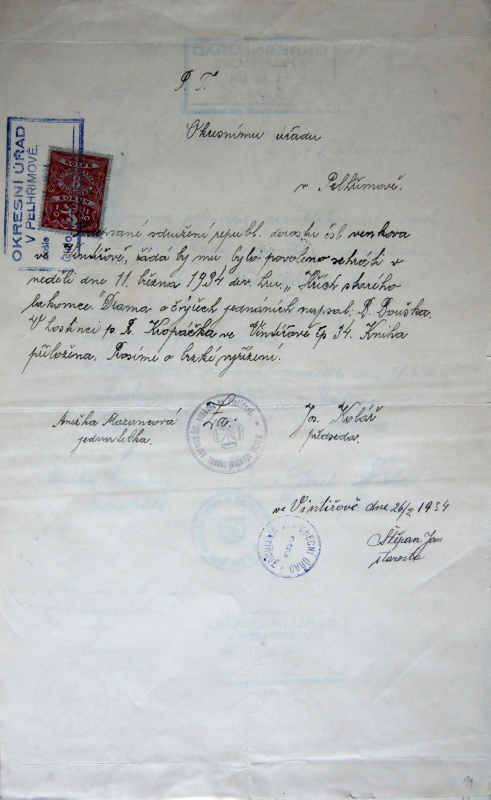 P. T.
Okresnímu úřadu
v Pelhřimově.
OKRESNÍ ÚŘAD
V PELHŘIMOVĚ.
sdružení republ. dorostu čsl venkova
ve Vintířově, žádá by mu bylo povoleno sehráti v
neděli dne 11. března 1934 div. hru, „Hřích starého
lakomce." Drama o čtyřech jednáních napsal. R. Bouška.
V hostinci p. R. Kropáčka ve Vintířově čp 34. Kniha
přiložena. Prosíme o brzké vyřízení.
Anežka Mazancová
jednatelka.
Jos. Kolář
předseda.
ve Vintířově dne 26/II 1934
OBECNÍ ÚŘAD
Štěpan Jan
starosta